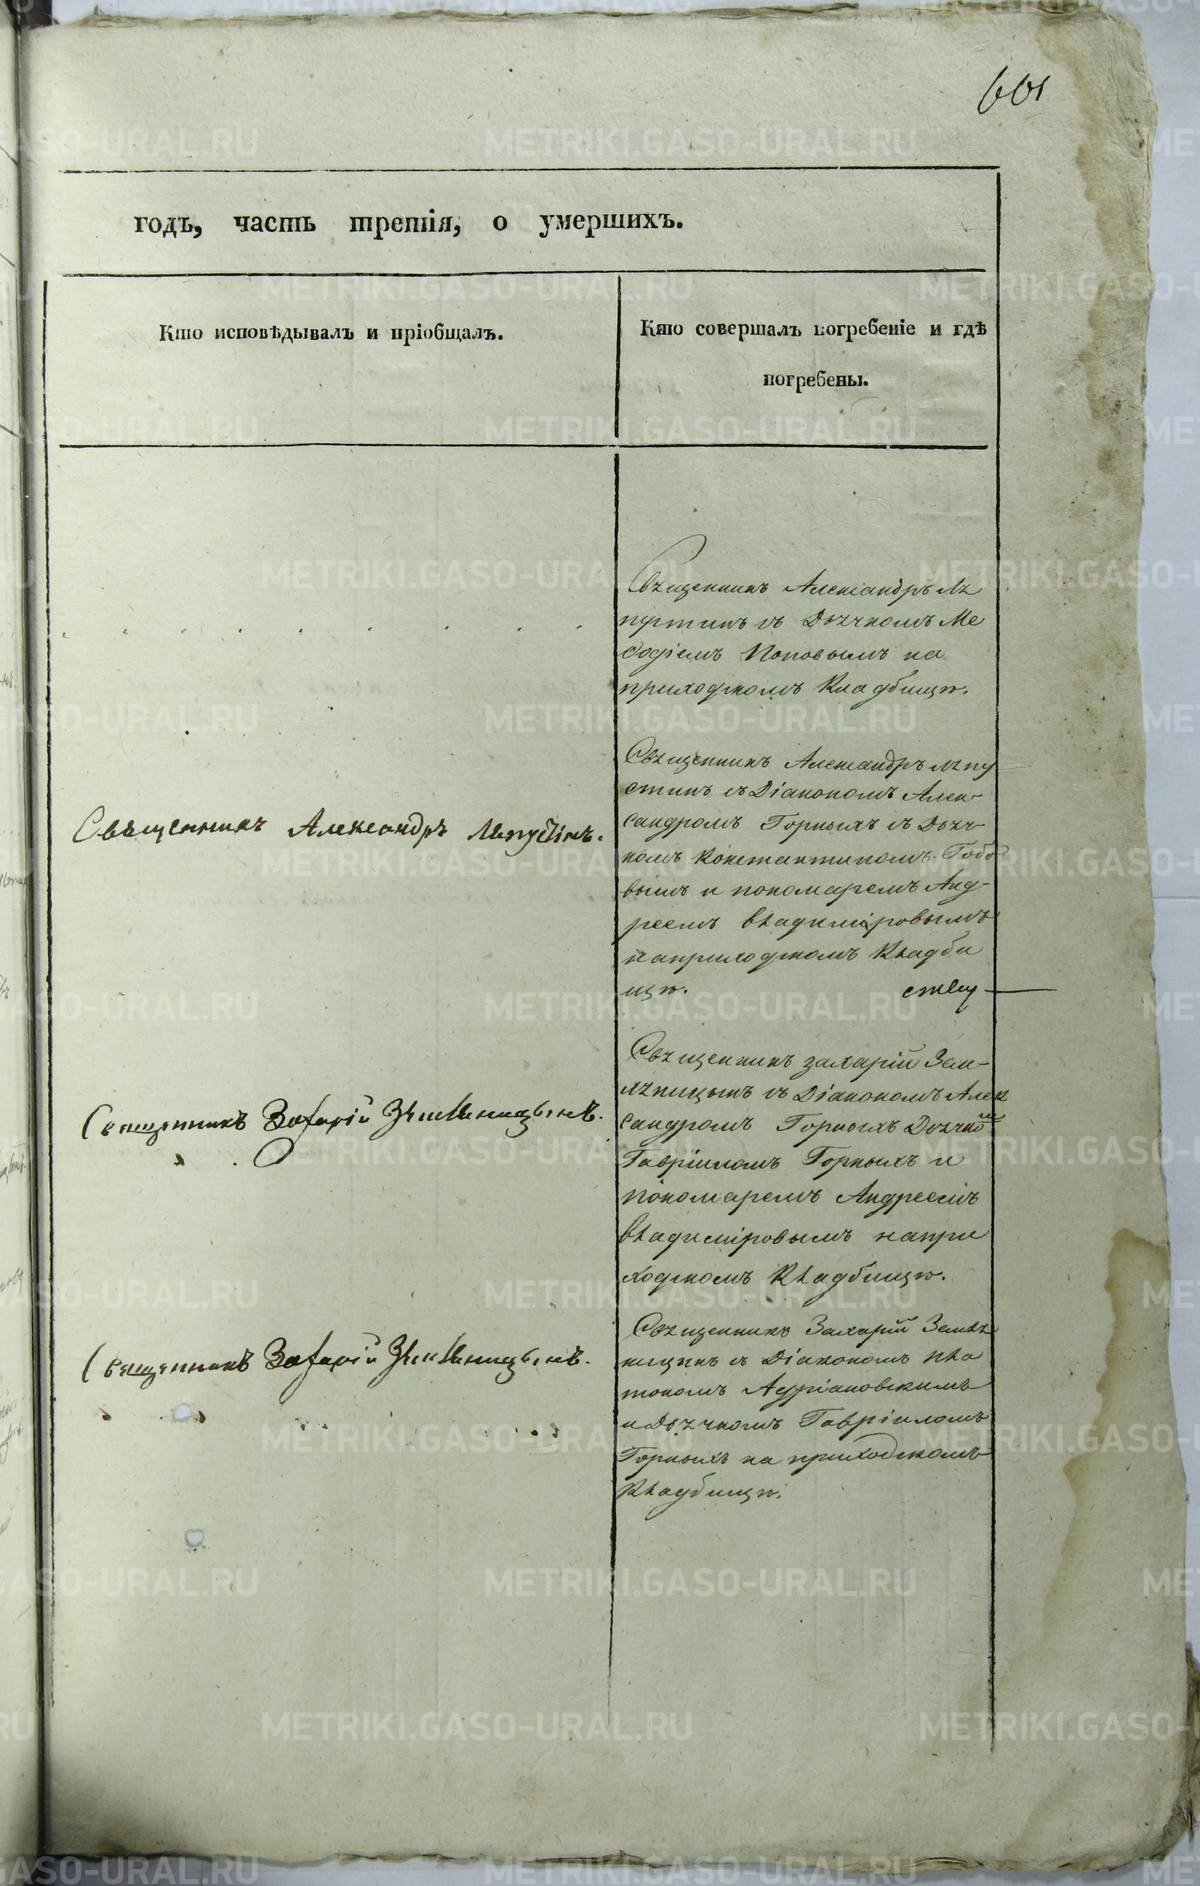 601
годъ, часть третія, о умершихъ.
Кто исповѣдывалъ и пріобщалъ.
Кто совершалъ погребеніе и гдѣ
погребены.
Священникъ Александръ Ля
пустинъ съ Дьячкомъ Ме
ѳодіемъ Поповымъ на
приходскомъ Кладбищѣ.
Священникъ Александръ Ляпу
стинъ съ Діакономъ Алек-
сандромъ Горныхъ съ Дьяч-
комъ Константиномъ
вымъ и пономаремъ Анд-
реемъ Владиміровымъ
на приходскомъ Кладби
щѣ.
Священникъ Александръ Ляпустинъ.
Священникъ Захарій Зем-
ляницынъ съ Діакономъ Алек
сандромъ Горныхъ Дьячкомъ
Гавріиломъ Горныхъ и
пономаремъ Андреемъ
Владиміровымъ на при
ходскомъ Кладбищѣ.
Священникъ Захарій Земляницынъ.
Священникъ Захарій Земля
ницынъ съ Діакономъ Пла
тономъ Адріановскимъ
и Дьячкомъ Гавріиломъ
Горныхъ на приходскомъ
Кладбищѣ.
Священникъ Захарій Земляницынъ.
METRIKI.GASO-URAL.RU